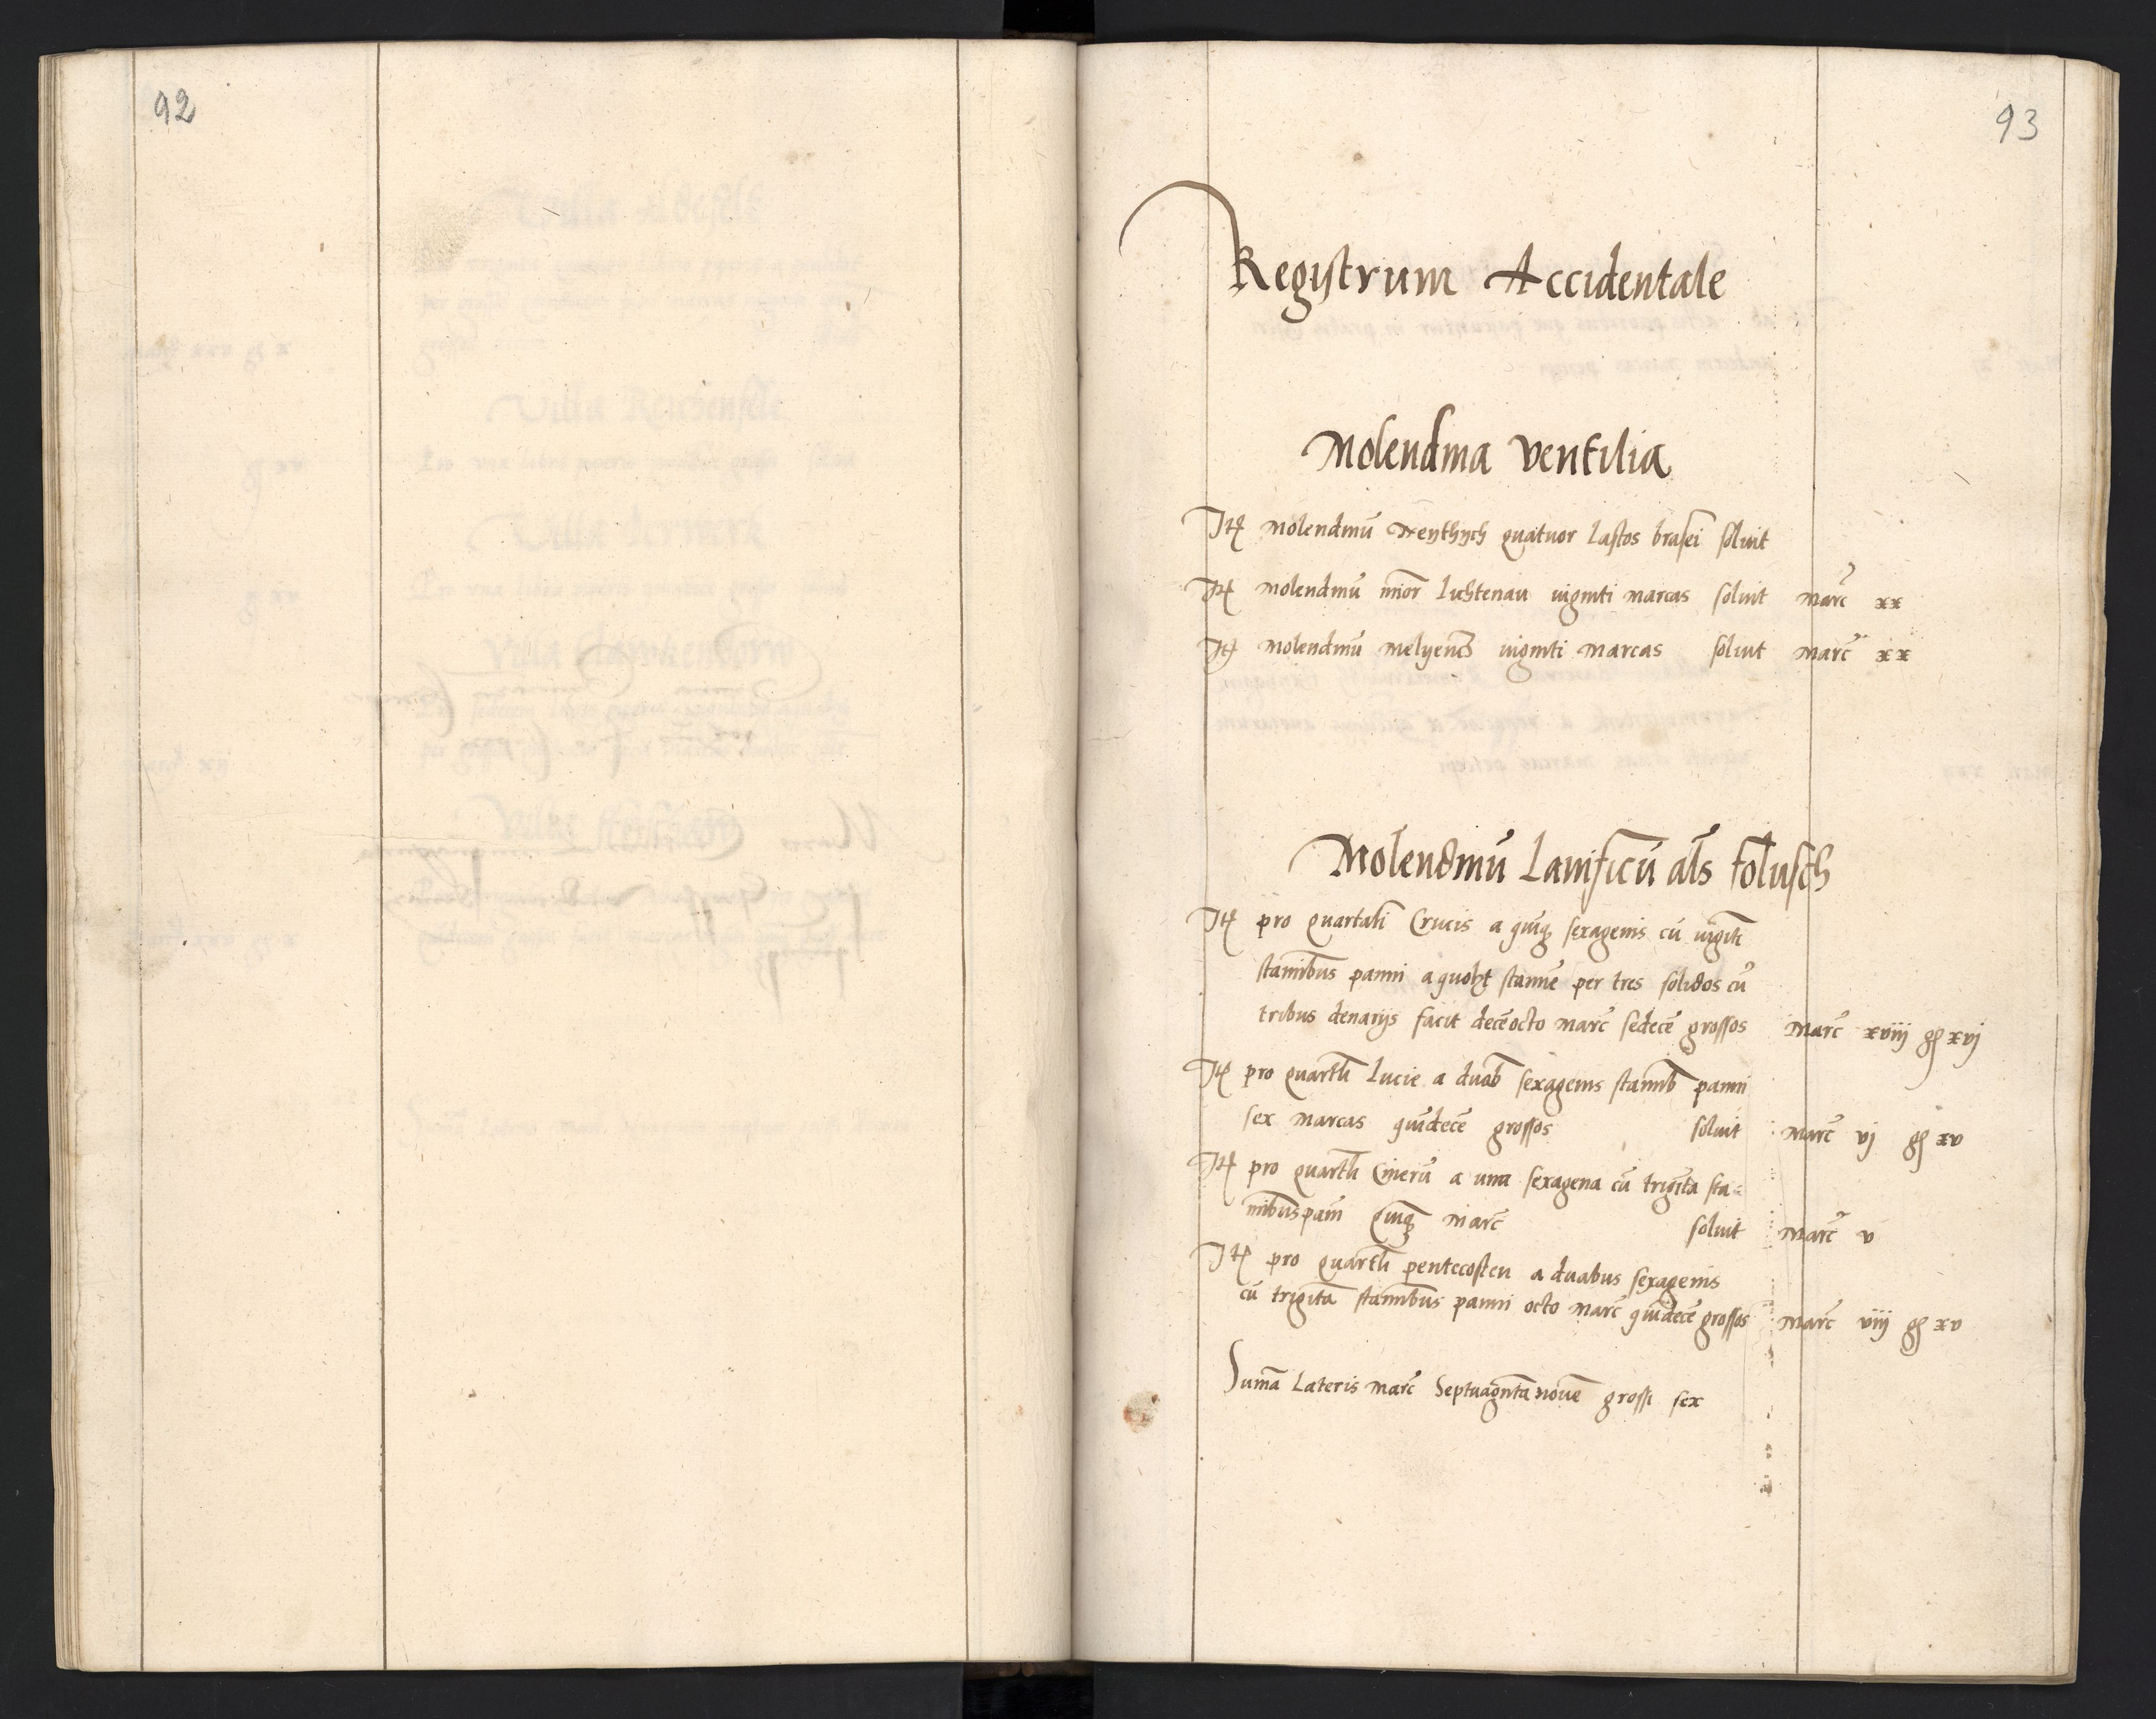 92
93
Registrum Accidentale
Molendina ventilia
Itē molendinū Neythych quatuor lastos brasei soluit
Itē molendinū minor luchtenau viginti marcas soluit marc̄ xx
Itē molendinū viginti marcas soluit marc̄ xx
Molendinū Lanificū als folusch
Itē pro quartali Crucis a quīq sexagenis cū vigīti
staminibus panni a quolꝫ stamīe per tres solidos cū
tribus denarijs facit decēocto marc̄ sedecē grossos marc̄ xviij gͬ xvj
Itē pro quartli Lucie a duob sexagenis stamīb panni
sex marcas quīdecē grossos soluit marc̄ vj gͬ xv
Itē pro quartli Cinerū a una sexagena cū trigīta sta=
minibus pāni quīq marc̄ soluit marc̄ v
Itē pro quartli pentecosten a duabus sexagenis
cū trigīta stamībus panni octo marc̄ quīdecē grossos marc̄ viij gͬ xv
Sum̄a Lateris marc̄ Septuagīntanouē grossi sex